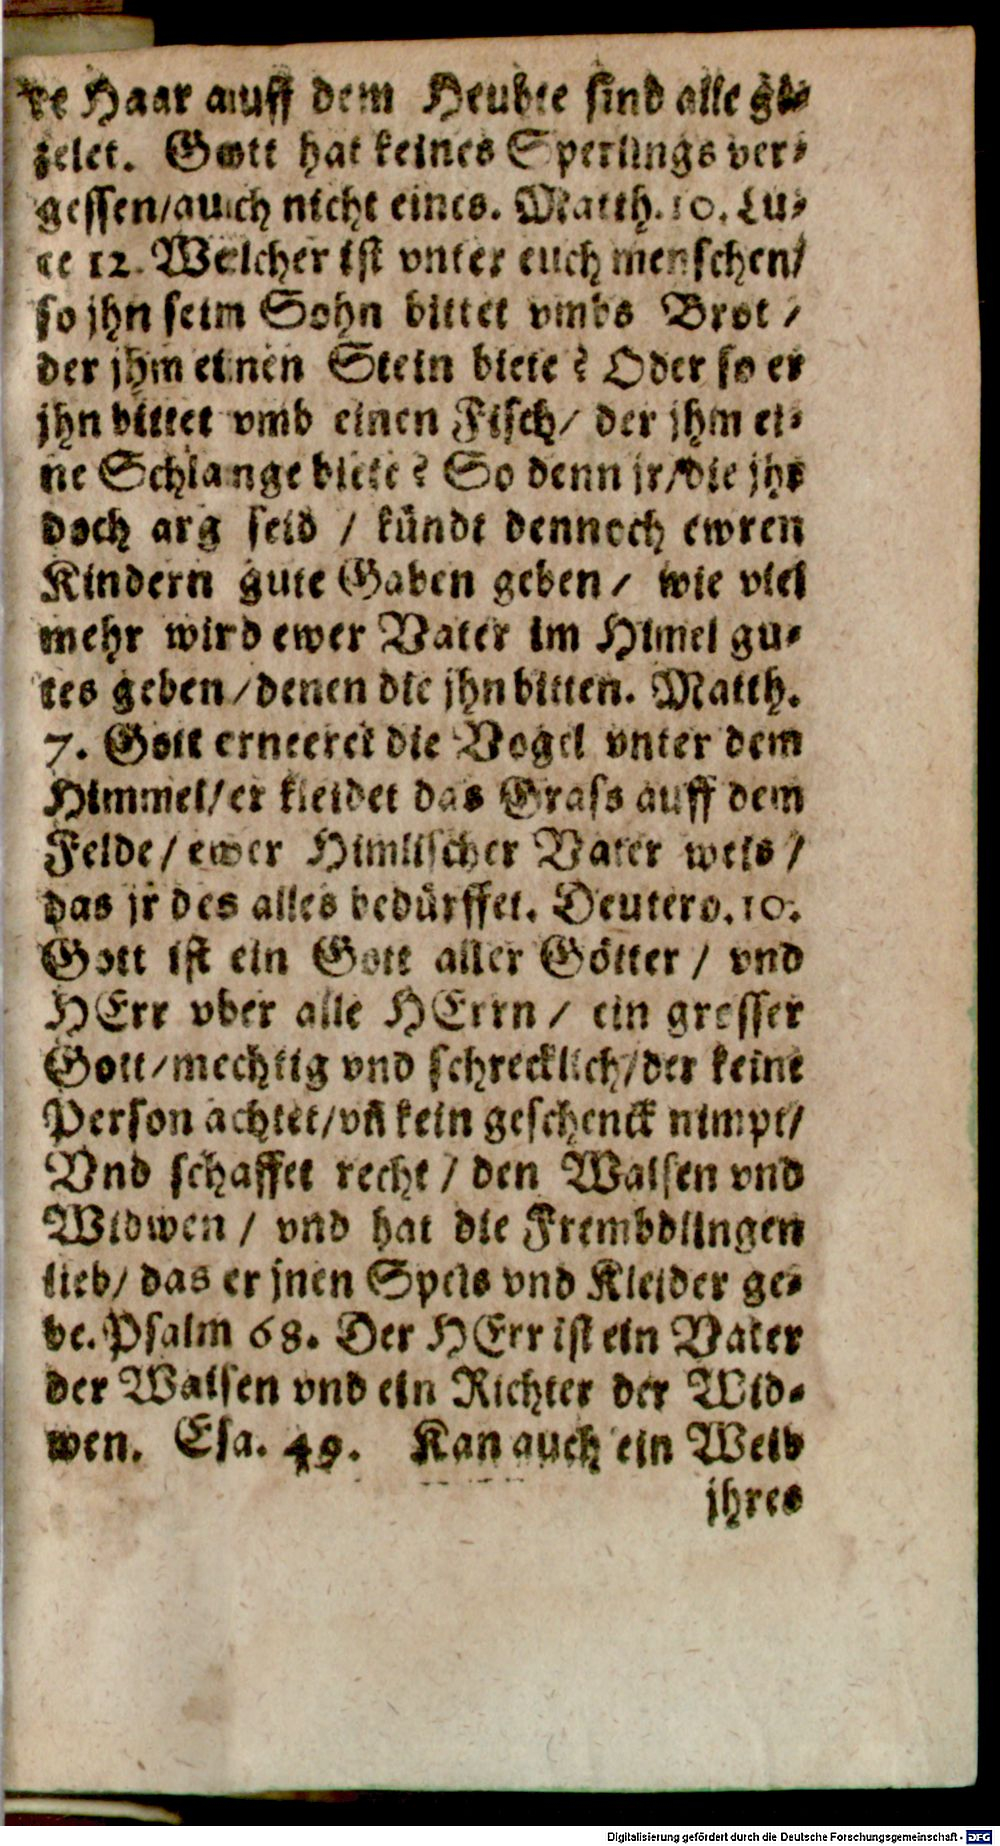 re Haar auff dem Heubte sind alle ge-
zelet. Gott hat keines Sperlings ver-
gessen/auch nicht eines. Matth. 10. Lu-
ce 12. Welcher ist vnter euch menschen/
so jhn seim Sohn bittet vmbs Brot /
der jhm einen Stein biete? Oder so er
jhn bittet vmb einen Fisch/ der jhm ei-
ne Schlange biete? So denn jr/die jhr
doch arg seid / kündt dennoch ewren
Kindern gute Gaben geben/ wie viel
mehr wird ewer Vater im Himel gu-
tes geben/denen die jhn bitten. Matth.
7. Gott erneeret die Vogel vnter dem
Himmel/er kleidet das Grass auff dem
Felde/ ewer Himlischer Vater weis /
das jr des alles bedürffet. Deutero. 10.
Gott ist ein Gott aller Götter / vnd
HErr vber alle HErrn / ein grosser
Gott/mechtig vnd schrecklich/der keine
Person achtet/vñ kein geschenck nimpt/
Vnd schaffet recht / den Waisen vnd
Widwen / vnd hat die Frembdlingen
lieb/ das er jnen Speis vnd Kleider ge-
be. Psalm 68. Der HErr ist ein Vater
der Waisen vnd ein Richter der Wid-
wen. Esa. 49. Kan auch ein Weib
jhres
Digitalisierung gefördert durch die Deutsche Forschungsgemeinschaft - DFG